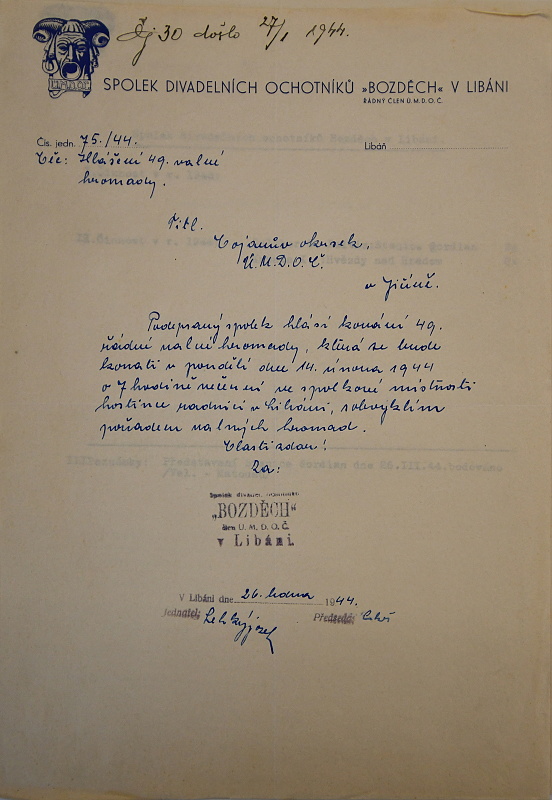 Čj 30 došlo 27/1 1944.
Ú.M.D.O.Č.
SPOLEK DIVADELNÍCH OCHOTNÍKŮ »BOZDĚCH« V LIBÁNI
ŘÁDNÝ ČLEN Ú.M.D.O.Č.
Čís. jedn. 75./44.
Libáň
Věc: Hlášení 49. valné
hromady.
Titl.
okrsek,
Ú.M.D.O.Č.
v Jičíně.
Podepsaný spolek hlásí konání 49.
řádné valné hromady, která se bude
konati v pondělí dne 14. února 1944
o 7 hodině večerní ve spolkové místnosti
hostince radnici v Libáni, s obvyklým
pořadem valných hromad.
Vlasti zdar!
Za:
Spolek divadel. ochotníků
„BOZDĚCH"
člen Ú. M. D. O. Č.
v Libáni.
V Libáni dne 26. ledna 1944.
jednatel: Předseda: